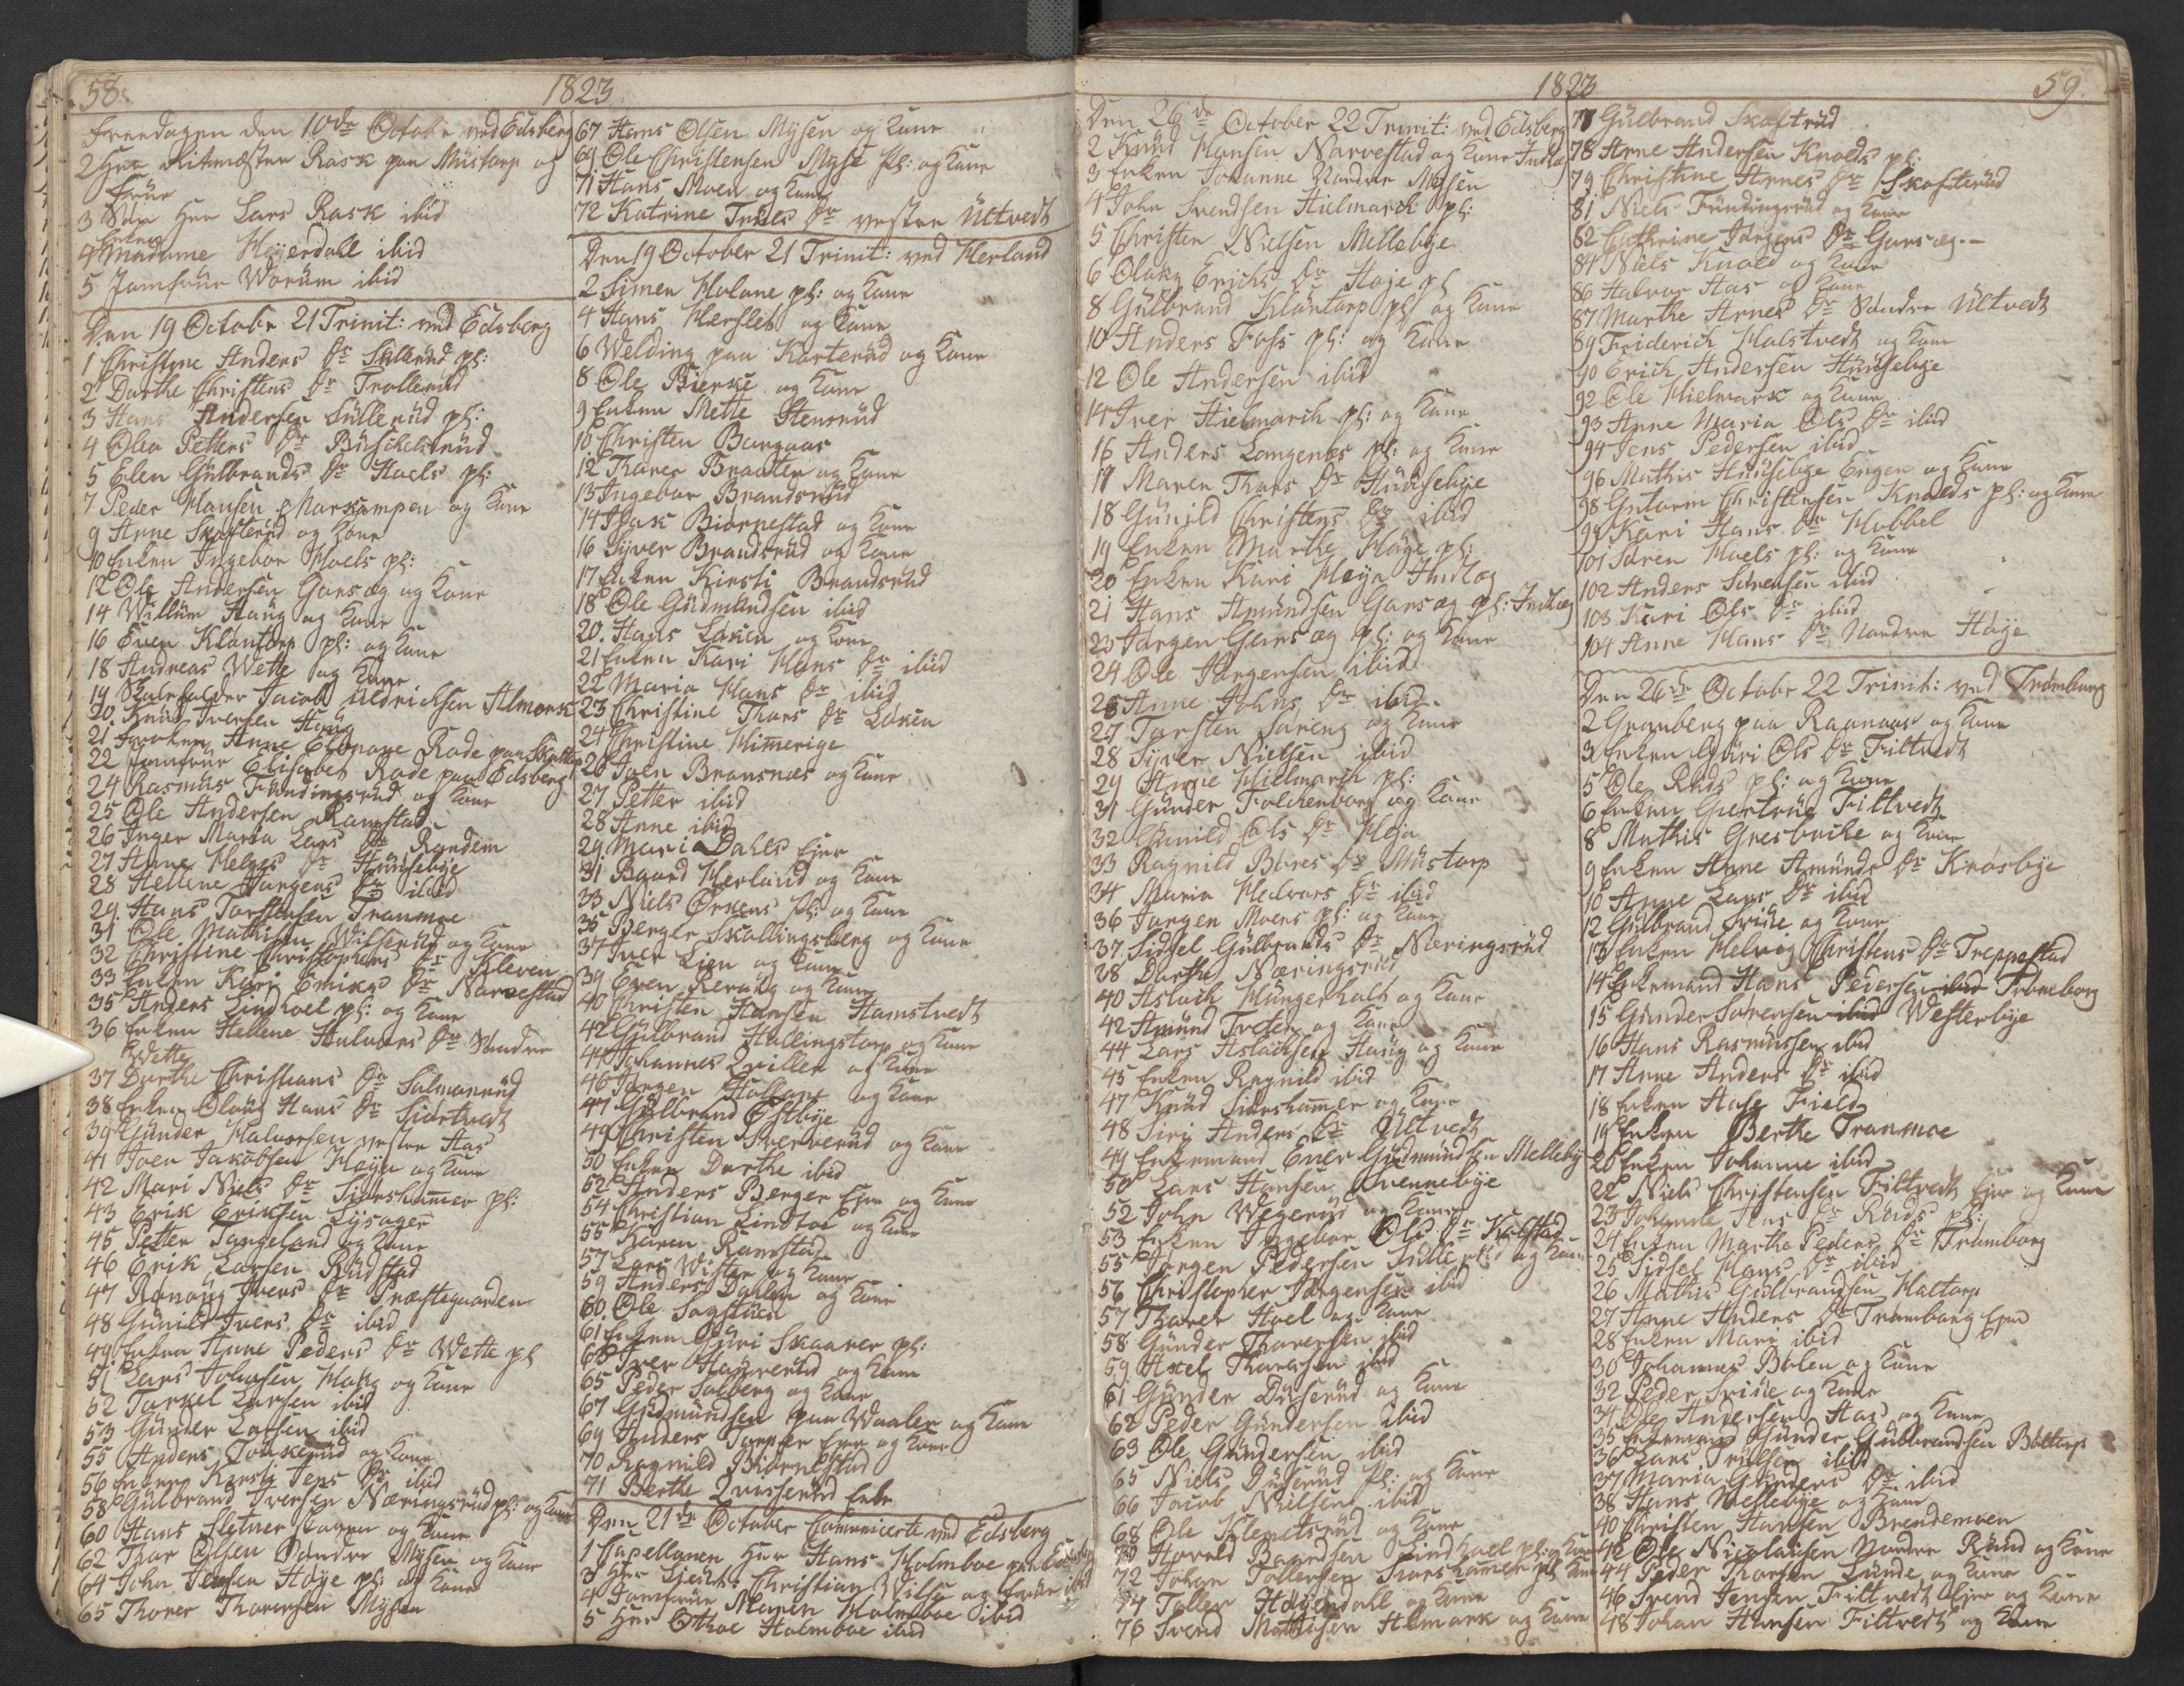 58.
1823
Freedagen den 10de Octobr ved Edsberg
2 Herr Ritmester Rask paa Mustorp og
Frue
3 Herr Lars Rask ibid
4 Madame Heyerdahl ibid
5 Jomfrue Worum ibid
Den 19 Octobr 21 Trinit: ved Edsberg
1 Christine Anders Dr Sullerud pl:
2 Dorthe Christens Dr Trollerud
3 Hans Andersen Sullerud pl:
4 Olea Petters Dr
5 Elen Gulbrands Dr Haels pl:
7 Peder Hansen Morkampen og Kone
9 Arne Skofterud og Kone
10 Enken Ingebor Hoels pl:
12 Ole Andersen Garsæg og Kone
14 Willum Haug og Kone
16 Even Klantorp pl: og Kone
18 Andreas Wette og Kone
19 Skoleholder Jacob Uldrichsen Almonsk
20. Knud Iversen Haug
21 Frøken Anne Rode paa
22 Jomfrue Elisabet Rode paa Edsberg
24 Rasmus Fundingsrud og Kone
25 Ole Andersen Ramstad
26 Inger Maria Lars Dr Randem
27 Anne Helges Dr Huusebye
28 Hellene Jørgens Dr ibid
29 Hans Torstensen Tranmoe
31 Ole Mathisen Wilserud og Kone
32 Christine Christophers Dr Kleven
33 Enken Kari Dr Narvestad
35 Anders Lindhoel pl: og Kone
36 Enken Hellene Halvors Dr Søndre
Wette
37 Dorthe Christians Dr Salmonrud
38 Enken Oloug Hans Dr Siortvedt
39 Gunder Halvorsen vestre Aas
41 Joen Jakobsen Høyn og Kone
42 Mari Niels Dr Siørshammer pl:
43 Erik Eriksen Lysager
45 Petter Tangeland og Kone
46 Erik Larsen Rudstad
47 Ronaug Ivers Dr Præstegaarden
48 Gunild Ivers Dr ibid
49 Enken Anne Peders Dr Wette pl
51 Lars Johnsen og Kone
52 Torkel Larsen ibid
53 Gunder Larsen ibid
55 Anders Torskerud og Kone
56 Kirsti Jens Dr ibid
58 Gulbrand Iversen Næringsrud pl: og Kone
60 Hans Sletner og Kone
62 Thor Olsen Søndre Mysen og Kone
64 John Jensen Høye pl: og Kone
65 Thorer Thorersen Mysen
67 Hans Olsen Mysen og Kone
69 Ole Christensen Myse Pl: og Kone
71 Hans Moen og Kone
72 Katrine Truls Dr vestre Ultvedt
Den 19 October 21 Trinit: ved Herland
2 Simen Holane pl: og Kone
4 Hans Herslet og Kone
6 Welding paa Karterud og Kone
8 Ole Bierke og Kone
9 Enken Mette Stensrud
10 Christen Burgaas
12 Thorer Braaten og Kone
13 Ingebor Brandsrud
14 Isak Biørnestad og Kone
16 Syver Brandsrud og Kone
17 Enken Kirsti Brandsrud
18 Ole Gudmundsen ibid
20. Hans Løken og Kone
21 Enken Kari Hans Dr ibid
22 Maria Hans Dr ibid
23 Christine Thors Dr Løken
24 Christine Himerige
26 Joen Bransnæs og Kone
27 Petter ibid
28 Anne ibid
29. Mari Dahls Ejer
31 Baard Herland og Kone
33 Niels Ørkens Pl: og Kone
35 Berger Skallingsberg og Kone
37 Iver Lien og Kone
39 Even Keraug og Kone
40 Christen Hansen Hamstvedt
42 Gulbrand Hallingstorp og Kone
44 Johannes Qviller og Kone
46 Jørgen og Kone
47 Gulbrand Østbye
49 Christen Sververud og Kone
50 Enken Dorthe ibid
52 Anders Berger Ejer og Kone
54 Christian Lindhol og Kone
55 Karen Ramstad
57 Lars Wister og Kone
59 Anders Dahlen og Kone
60. Ole Sagstuen
61 Enken Guri Skaaner pl:
63 Iver Haugerud og Kone
65 Peder Solberg og Kone
67 Gudmundsen paa Waaler og Kone
69 Anders Torper Ejer og Kone
70 Ragnild Biørnestad
71 Berthe Qvisserud Enke
Den 21de October Communicerte ved Edsberg
1 Capellanen Herr Hans Holmboe
3 Herr Lieut: Christian Wilse og Frue ibid
4 Jomfrue Maren Holmboe ibid
5 Herr Othoe Holmboe ibid
1823
59.
Den 26de October 22 Trinit: ved Edsberg
2 Knud Hansen Narvestad og Kone Indlæg
3 Enken Johanne Nordre Mysen
4 John Svendsen Hielmark pl:
5 Christen Nielsen Mellebye
6 Oloug Erichs Dr Høje pl
8 Gulbrand Klantorp pl og Kone
10 Anders Foss pl: og Kone
12 Ole Andersen ibid
14 Iver Hielmarch pl: og Kone
16 Anders Langenæs pl: og Kone
17 Maren Thors Dr Huusebye
18 Gunild Christens Dr ibid
19 Enken Marthe Høye pl:
20 Enken Kari Høye Indlæg
21 Hans Amundsen Garsæg pl: Indlæg
23 Jørgen Garsæg pl: og Kone
24 Ole Jørgensen ibid
26 Anne Johns Dr ibid
27 Torsten Søreng og Kone
28 Syver Nielsen ibid
29 Anne Hielmarch pl:
31 Gunder Folckenborg og Kone
32 Gunild Ols Dr Høyn
33 Ragnild Bores Dr Mustorp
34 Maria Halvors Dr ibid
36 Jørgen Moens pl: og Kone
37. Sidsel Gulbrands Dr Næringsrud
38 Dorthe Næringsrud
40 Aslach Hungerhalt og Kone
42 Amund Treten og Kone
44 Lars Aslachsen Haug og Kone
45 Enken Ragnild ibid
47 Knud Siørshammer og Kone
48 Siri Anders Dr Ultvedt
49 Enkemand Ener Gudmundsen Melleby
50 Lars Hansen Qvennebye
52 John Wegerud og Kone
53 Enken Ingebor Ols Dr Kalstad
55 Jørgen Pedersen Sullerud og Kone
56 Christopher Jørgensen ibid
57 Thorer Hoel og Kone
58 Gunder Thorersen ibid
59 Axel Thorersen ibid
61 Gunder Duserud og Kone
62 Peder Gundersen ibid
63 Ole Gundersen ibid
65 Niels Duserud Pl: og Kone
66 Jacob Nielsen ibid
68 Ole Klemetsrud og Kone
70 Havold Baardsen Lindhoel pl: og Kone
72 Johan Tollersen Siørshamer pl Kone
74 Toller Høyendahl og Kone
76 Svend Mathisen Almark og Kone
77 Gulbrand Skaftrud
78 Arne Andersen Knolds pl:
79 Christine Arnes Dr Skofterud
81 Niels Fundingsrud og Kone
82 Cathrine Jørgens Dr Garsæg
84 Niels Knold og Kone
86 Halvor Aas og Kone
87 Marthe Arnes Dr Søndre Ultvedt
89 Friderich Halstvedt og Kone
90 Erick Andersen Huusebye
92 Ole Hielmark og Kone
93 Anne Maria Ols Dr ibid
94 Jens Pedersen ibid
96 Mathis Huusebye Engen og Kone
98 Gutorm Christensen Knolds pl: og Kone
99 Kari Hans Dr Hobbel
101 Søren Hoels pl: og Kone
102 Anders Sørensen ibid
103 Kari Ols Dr ibid
104 Anne Hans Dr Nordre Høye
Den 26de Octobr 22 Trinit: ved Trømborg
2 Grønberg paa Raanaas og Kone
3 Enken Guri Ols Dr Filtvedt
5 Ole Ruds pl: og Kone
6 Enken Giertrue Filtvedt
8 Mathis Gresbache og Kone
9 Enken Anne Amunds Dr Knosbye
10 Anne Lars Dr ibid
12 Gulbrand og Kone
13 Enken Helvig Christens Dr Treppestad
14 Enkemand Hans Pedersen ibid Trømborg
15 Gunder Sørensen ibid Westerbye
16 Hans Rasmussen ibid
17 Anne Anders Dr ibid
18 Enken Aase Field
19 Enken Berthe Tranmoe
20 Enken Johanne ibid
22 Niels Christensen Filtvedt Ejer og Kone
23 Johanne Jens Dr Ruds pl:
24 Enken Marthe Peders Dr Trømborg
25 Sidsel Hans Dr ibid
26 Mathis Gulbrandsen Haltorp
27 Anne Anders Dr Trømborg Ejer
28 Enken Mari ibid
30 Johannes Bølen og Kone
32 Peder og Kone
34 Ole Andersen Aas og Kone
35 Enkemand Gunder Gulbrandsen Boltorp
36 Lars Trulsen ibid
37 Maria Gunders Dr ibid
38 Hans Mellebye og Kone
40 Christen Hansen Brendemoen
42 Ole Nicolaisen Nordre Rund og Kone
44 Peder Thorsen Lunde og Kone
46 Svend Jensen Filtvedt Ejer og Kone
48 Johan Hansen Filtvedt og Kone